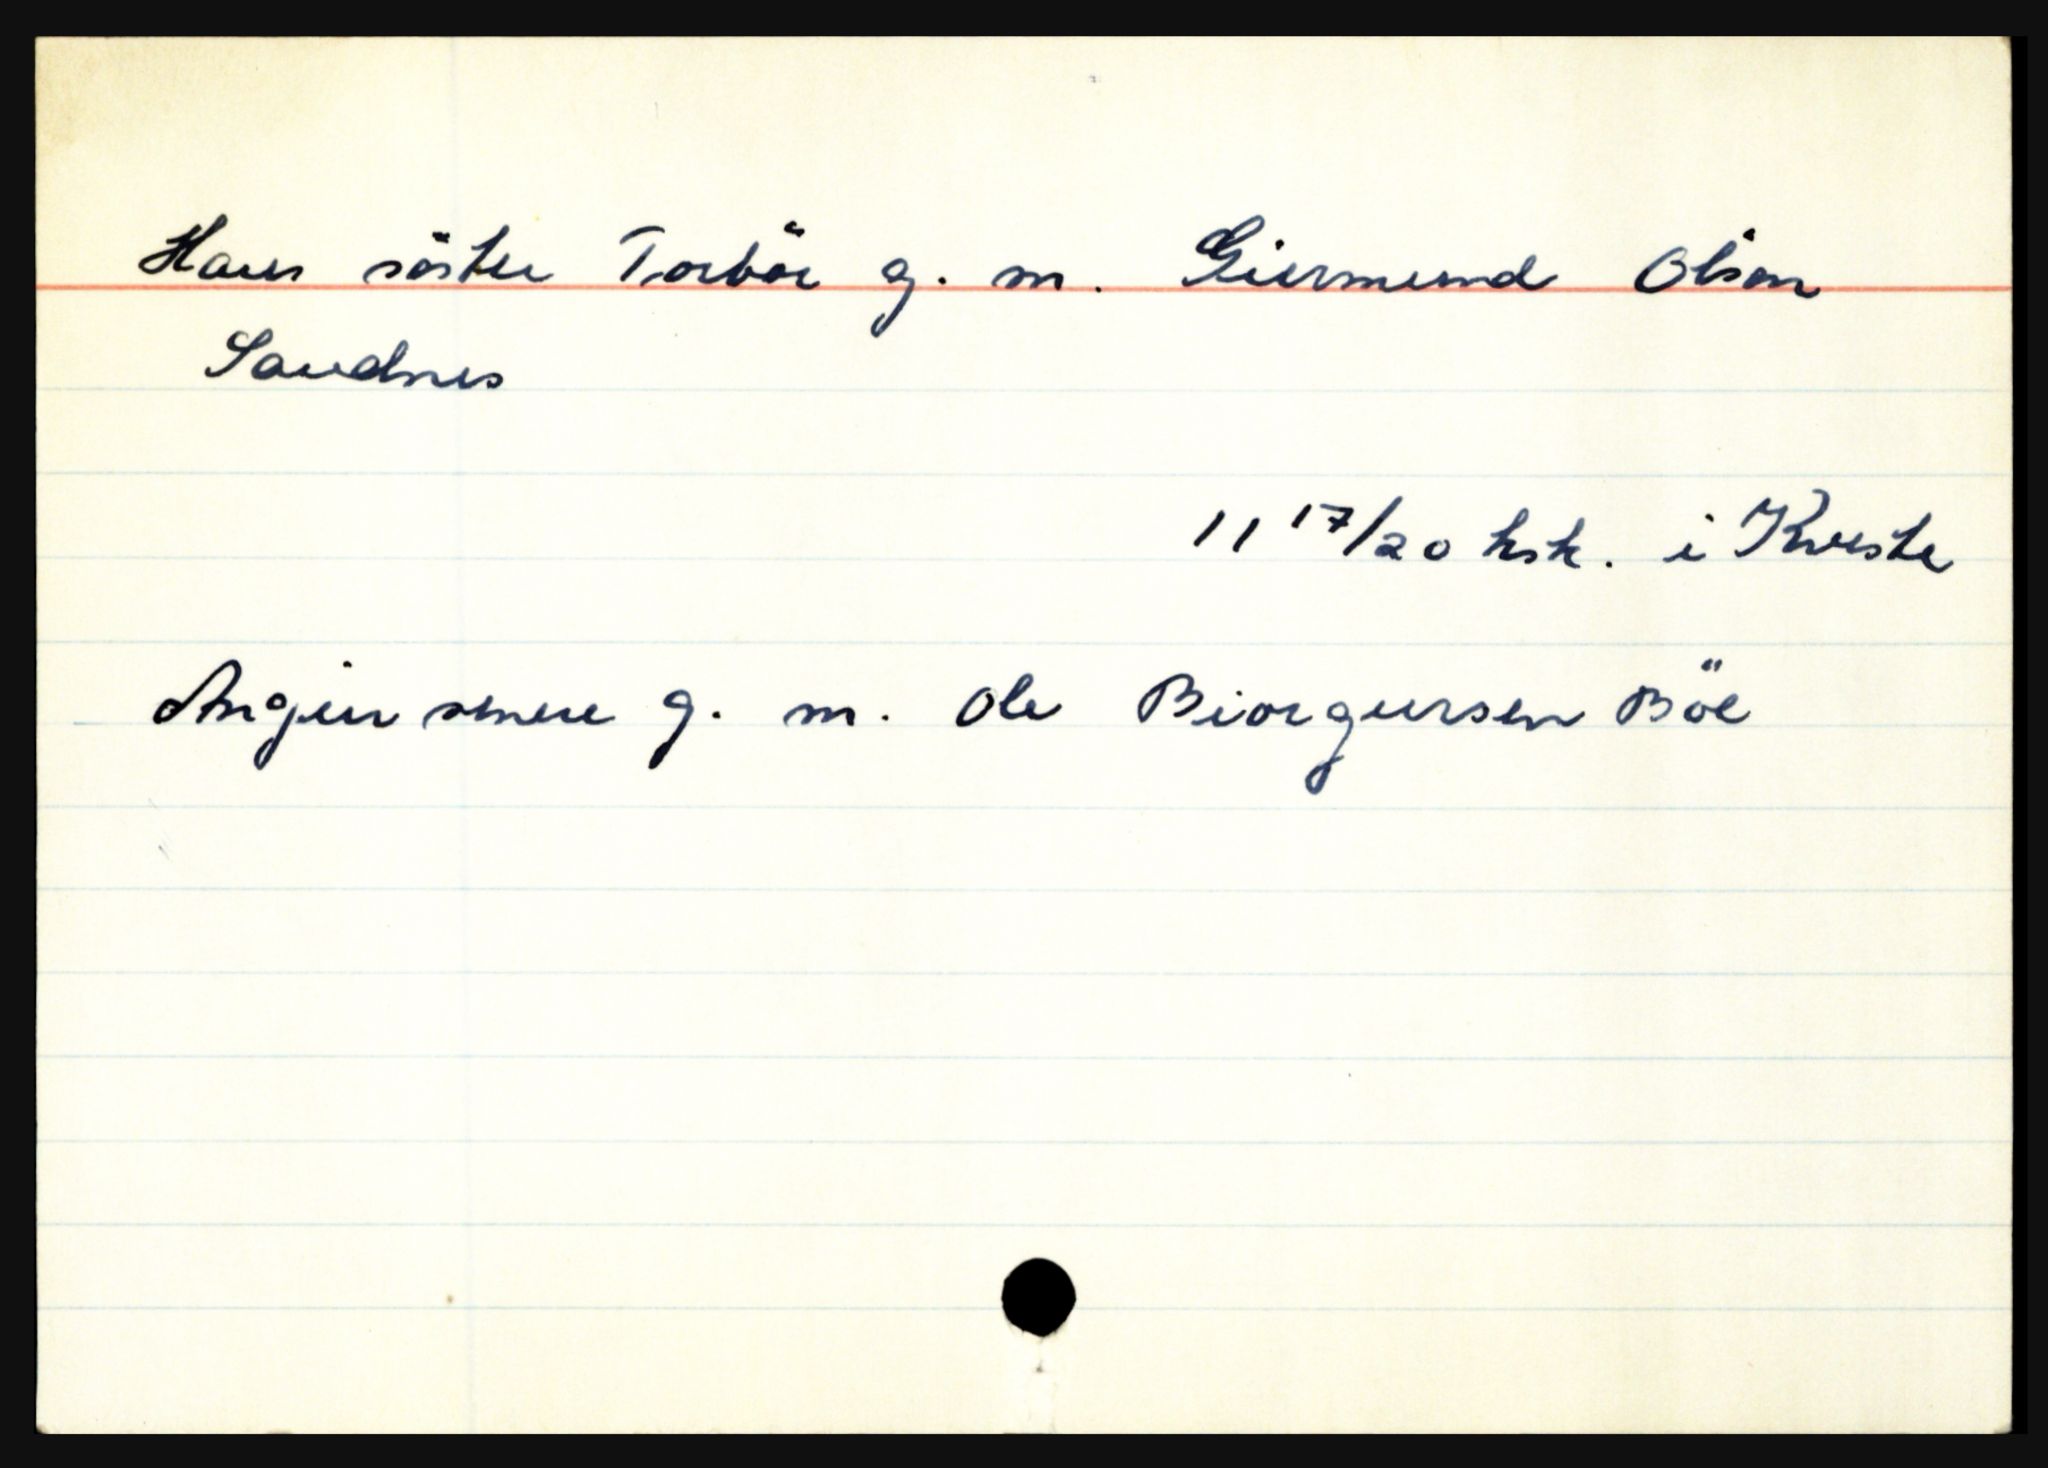 Hans söster Torbör g. m. Giermund Olson
Sandnes
11 17/20 ksk. i Kveste
Angier senere g. m. Ole Biorguersen Böe